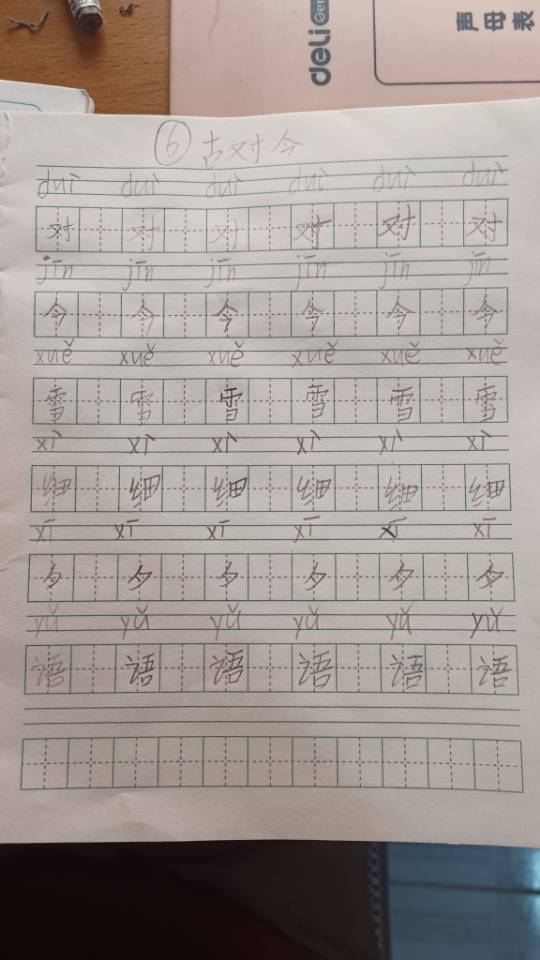 deli
声母表
⑥ 古对今
duì duì duì duì duì duì
对 对 对 对 对 对
jīn jīn jīn jīn jīn jīn
今 今 今 今 今 今
xuě xuě xuě xuě xuě xuě
雪 雪 雪 雪 雪 雪
xì xì xì xì xì xì
细 细 细 细 细 细
xī xī xī xī xī xī
夕 夕 夕 夕 夕 夕
yǔ yǔ yǔ yǔ yǔ yǔ
语 语 语 语 语 语